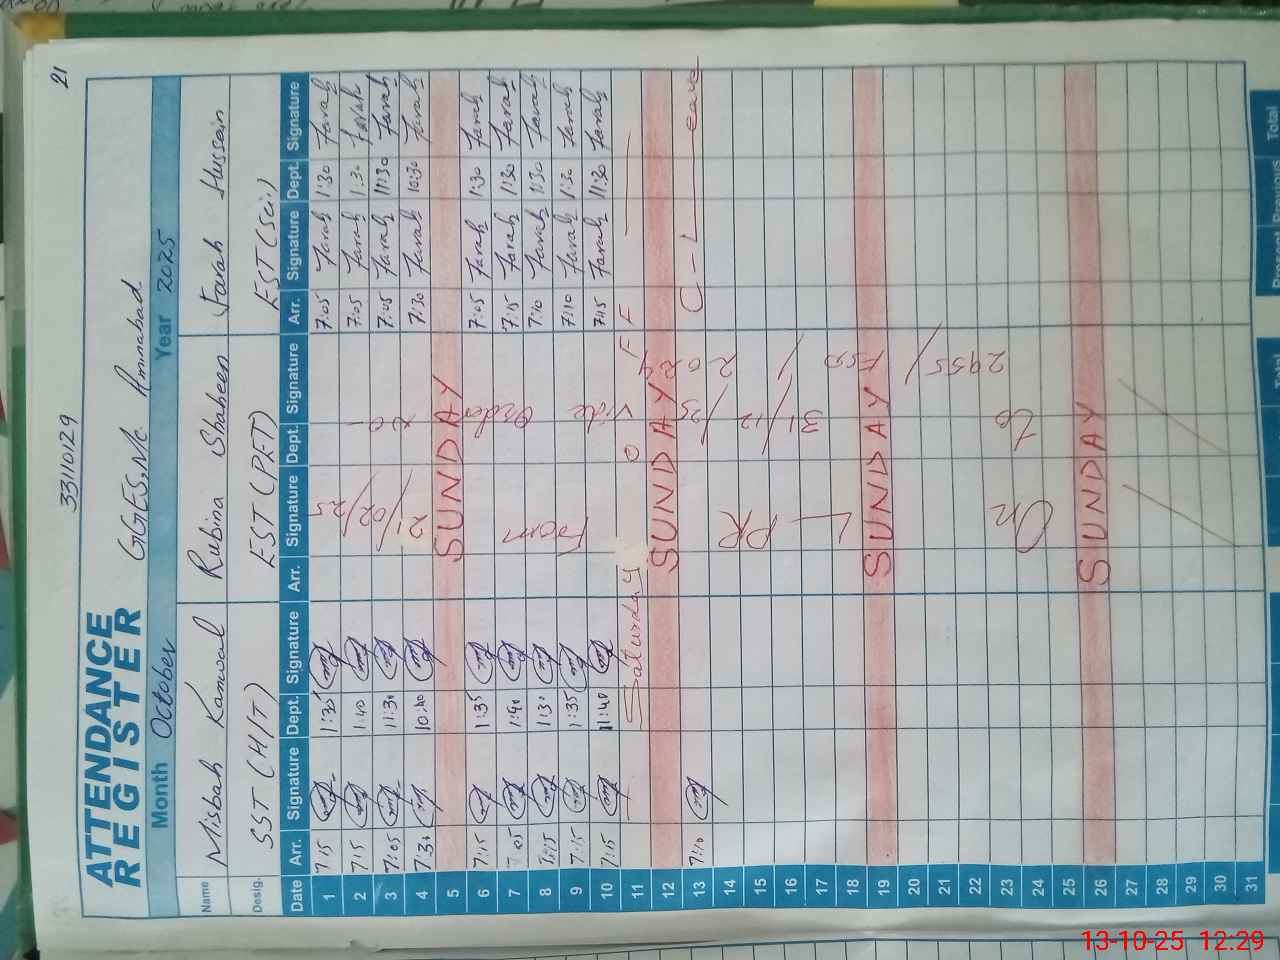 21
33110129
ATTENDANCE REGISTER
GGES, Nc. Aminabad
Month October Year 2025
Name Misbah Kanwal Rubina Shaheen Farah Hussain
Desig. SST (H/T) EST (PET) EST (Sci.)
Date Arr. Signature Dept. Signature Arr. Signature Dept. Signature Arr. Signature Dept. Signature
1 7:15 1:30 7:05 Farah 1:30 Farah
2 7:15 1:40 7:05 Farah 1:30 Farah
3 7:05 11:30 7:05 Farah 11:30 Farah
4 7:30 10:40 7:30 Farah 10:30 Farah
5 SUNDAY
6 7:15 1:35 7:05 Farah 1:30 Farah
7 7:05 1:40 7:15 Farah 1:30 Farah
8 7:15 1:30 7:10 Farah 1:30 Farah
9 7:15 1:35 7:10 Farah 1:30 Farah
10 7:15 11:40 7:15 Farah 11:30 Farah
11 Saturday O F F
12 SUNDAY
13 7:10 C-L eave
14
15
16
17
18
19 SUNDAY
20
21
22
23
24
25
26 SUNDAY
27
28
29
30
31
On PR-L From 21/02/25
to 31/12/25 vide Order no-
2955/ESD/2024
Total
Total
Present Previous
13-10-25 12:29